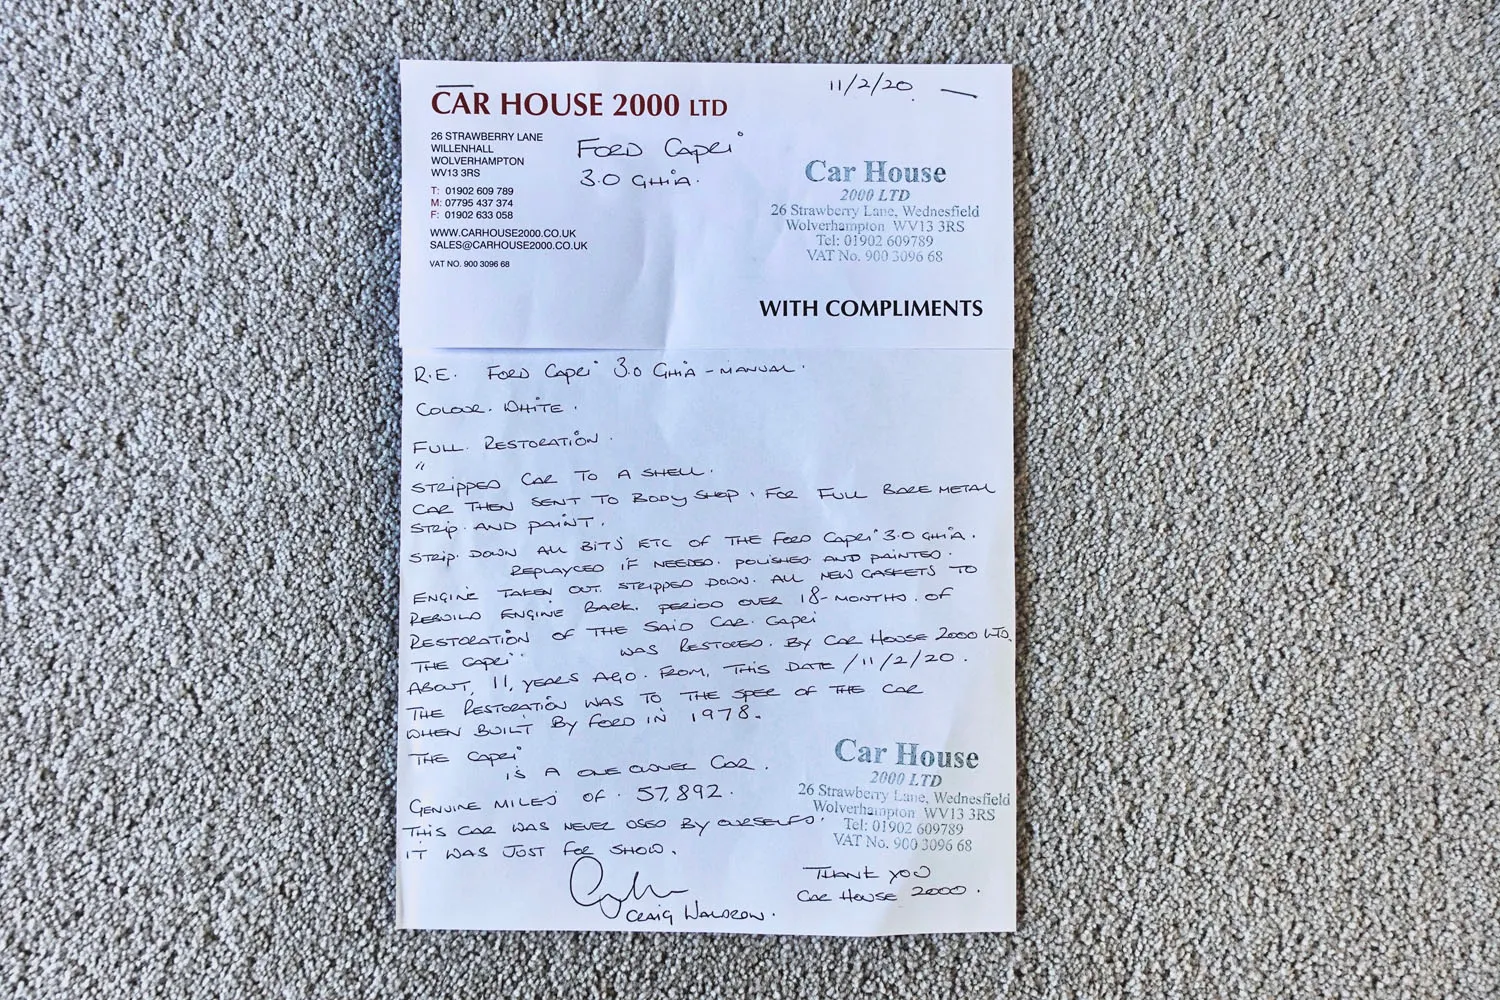 11/2/20
CAR HOUSE 2000 LTD
26 STRAWBERRY LANE
WILLENHALL
WOLVERHAMPTON
WV13 3RS
T: 01902 609 789
M: 07795 437 374
F: 01902 633 058
WWW.CARHOUSE2000.CO.UK
SALES@CARHOUSE2000.CO.UK
VAT NO. 900 3096 68
FORD Capri
3.0 GHiA.
Car House
2000 LTD
26 Strawberry Lane, Wednesfield
Wolverhampton WV13 3RS
Tel: 01902 609789
VAT No. 900 3096 68
WITH COMPLIMENTS
R.E. FORD Capri 3.0 GHiA - MANUAL.
COLOUR. WHiTE.
FULL. RESTORATiON.
"
STRippED CAR TO A SHELL.
CAR THEN SENT TO BODY SHOP, FOR FULL BARE METAL
STRip. AND PAiNT.
STRip. DOWN ALL BiTS ETC OF THE FORD Capri 3.0 GHiA.
REPLAYCED iF NEEDED. POLiSHED AND PAiNTED.
ENGiNE TAKEN OUT. STRiPPED DOWN. ALL NEW GASKETS TO
REBUiLD ENGiNE BACK. PERiOD OVER 18-MONTHS. OF
RESTORATiON OF THE SAiD CAR. Capri
THE Capri WAS RESTORED. BY CAR HOUSE 2000 LTD.
ABOUT, 11, YEARS AGO. FROM, THiS DATE /11/2/20.
THE RESTORATiON WAS TO THE SPEC OF THE CAR
WHEN BUiLT BY FORD iN 1978.
THE Capri
iS A ONE OWNER CAR.
GENUiNE MiLES OF. 57,892.
THiS CAR WAS NEVER USED BY OURSELFS'
iT WAS JUST FOR SHOW.
Car House
2000 LTD
26 Strawberry Lane, Wednesfield
Wolverhampton WV13 3RS
Tel: 01902 609789
VAT No. 900 3096 68
THANK YOU
CAR HOUSE 2000.
CRAiG WALDRON.